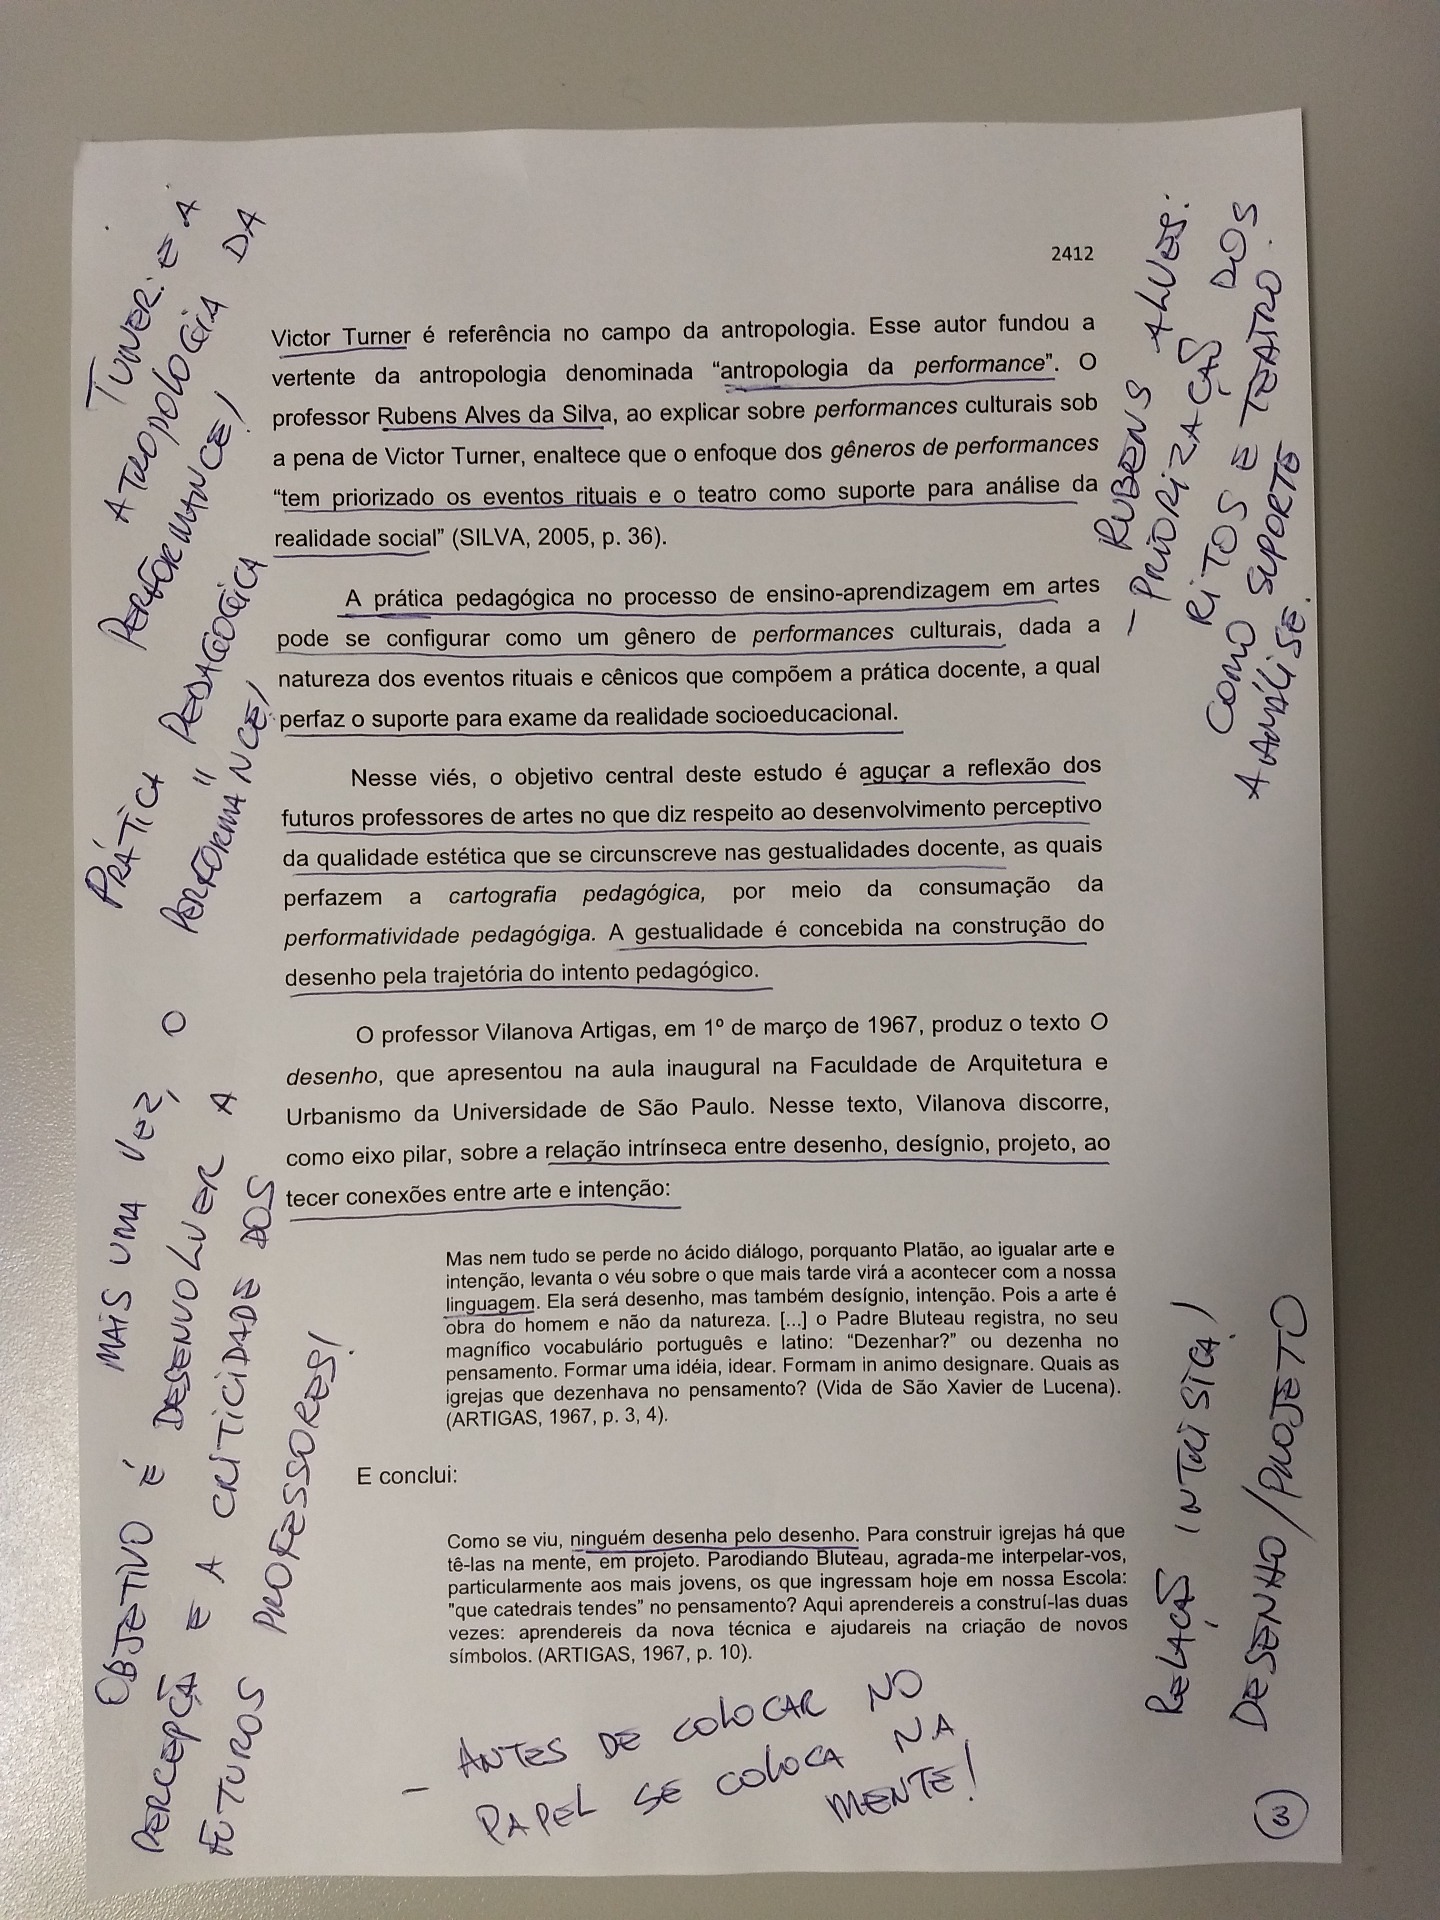 2412
Victor Turner é referência no campo da antropologia. Esse autor fundou a
vertente da antropologia denominada “antropologia da performance”. O
professor Rubens Alves da Silva, ao explicar sobre performances culturais sob
a pena de Victor Turner, enaltece que o enfoque dos gêneros de performances
“tem priorizado os eventos rituais e o teatro como suporte para análise da
realidade social” (SILVA, 2005, p. 36).
A prática pedagógica no processo de ensino-aprendizagem em artes
pode se configurar como um gênero de performances culturais, dada a
natureza dos eventos rituais e cênicos que compõem a prática docente, a qual
perfaz o suporte para exame da realidade socioeducacional.
Nesse viés, o objetivo central deste estudo é aguçar a reflexão dos
futuros professores de artes no que diz respeito ao desenvolvimento perceptivo
da qualidade estética que se circunscreve nas gestualidades docente, as quais
perfazem a cartografia pedagógica, por meio da consumação da
performatividade pedagógiga. A gestualidade é concebida na construção do
desenho pela trajetória do intento pedagógico.
O professor Vilanova Artigas, em 1º de março de 1967, produz o texto O
desenho, que apresentou na aula inaugural na Faculdade de Arquitetura e
Urbanismo da Universidade de São Paulo. Nesse texto, Vilanova discorre,
como eixo pilar, sobre a relação intrínseca entre desenho, desígnio, projeto, ao
tecer conexões entre arte e intenção:
Mas nem tudo se perde no ácido diálogo, porquanto Platão, ao igualar arte e
intenção, levanta o véu sobre o que mais tarde virá a acontecer com a nossa
linguagem. Ela será desenho, mas também desígnio, intenção. Pois a arte é
obra do homem e não da natureza. [...] o Padre Bluteau registra, no seu
magnífico vocabulário português e latino: “Dezenhar?” ou dezenha no
pensamento. Formar uma idéia, idear. Formam in animo designare. Quais as
igrejas que dezenhava no pensamento? (Vida de São Xavier de Lucena).
(ARTIGAS, 1967, p. 3, 4).
E conclui:
Como se viu, ninguém desenha pelo desenho. Para construir igrejas há que
tê-las na mente, em projeto. Parodiando Bluteau, agrada-me interpelar-vos,
particularmente aos mais jovens, os que ingressam hoje em nossa Escola:
"que catedrais tendes” no pensamento? Aqui aprendereis a construí-las duas
vezes: aprendereis da nova técnica e ajudareis na criação de novos
símbolos. (ARTIGAS, 1967, p. 10).
- ANTES DE COLOCAR NO
PAPEL SE COLOCA NA
MENTE!
TUNER: E A
ATROPOLOGIA DA
PERFORMANCE!
PRÁTICA PEDAGÓGICA
"
PERFORMANCE!
MAIS UMA VEZ, O
OBJETIVO É DESENVOLVER A
PERCEPÇÃ E A CRÍTICIDADE DOS
FUTUROS PROFESSORES!
RUBENS ALVES:
- PRIORIZAÇÃO DOS
RITOS E TEATRO
COMO SUPORTE
A ANÁLISE.
RELAÇÃO INTRÍSICA!
DESENHO/PROJETO
3